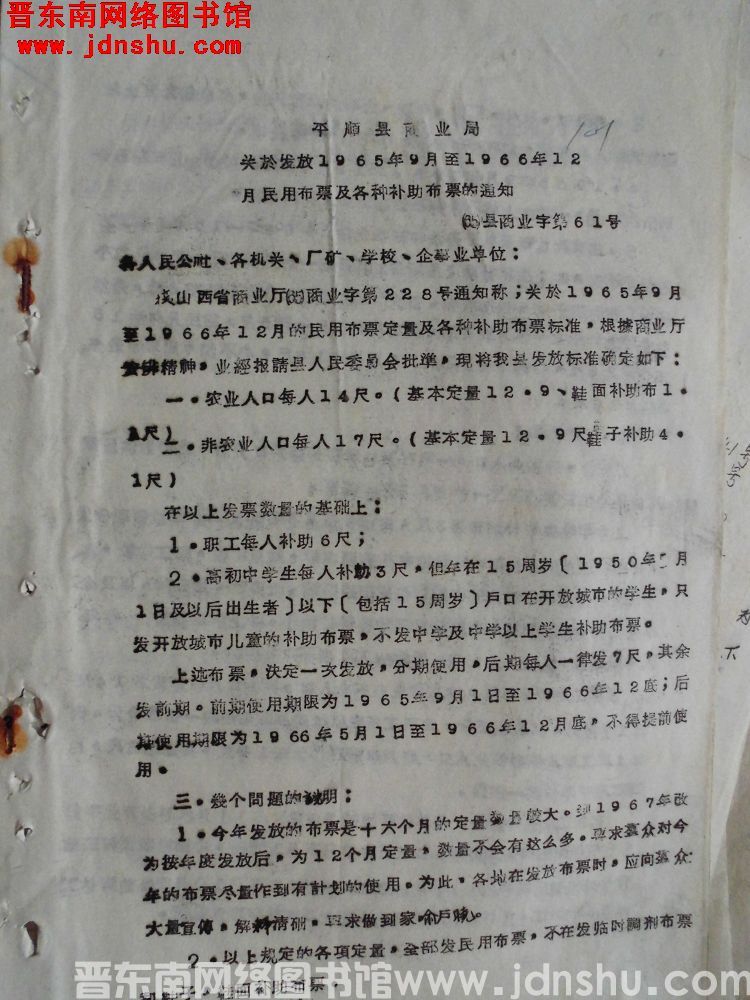 晋东南网络图书馆
www.jdnshu.com
平顺县商业局
181
关於发放1965年9月至1966年12
月民用布票及各种补助布票的通知
(65)县商业字第61号
各人民公社、各机关、厂矿、学校、企事业单位：
山西省商业厅(65)商业字第228号通知称；关於1965年9月
至1966年12月的民用布票定量及各种补助布票标准，根據商业厅
安排精神，业經报請县人民委员会批準，现将我县发放标准确定如下：
一．农业人口每人14尺。(基本定量12．9、鞋面补助布1．
1尺)
二．非农业人口每人17尺。(基本定量12．9尺鞋子补助4．
1尺)
在以上发票数量的基础上：
1．职工每人补助6尺；
2．高初中学生每人补助3尺，但年在15周岁〔1950年 月
1日及以后出生者〕以下〔包括15周岁〕戶口在开放城市的学生，只
发开放城市儿童的补助布票，不发中学及中学以上学生补助布票。
上述布票，决定一次发放，分期使用，后期每人一律发7尺，其余
发前期。前期使用期限为1965年9月1日至1966年12底；后
期使用期限为1966年5月1日至1966年12月底，不得提前使
用。
三．幾个問題的说明：
1．今年发放的布票是十六个月的定量数量較大。到1967年改
为按年度发放后，为12个月定量，数量不会有这么多，要求羣众对今
年的布票尽量作到有計划的使用。为此，各地在发放布票时，应向羣众
大量宣传，解释清础，要求做到家喻戶晓。
2．以上規定的各項定量，全部发民用布票，不在发临时調剂布票
鞋面补助布票．
晋东南网络图书馆www.jdnshu.com